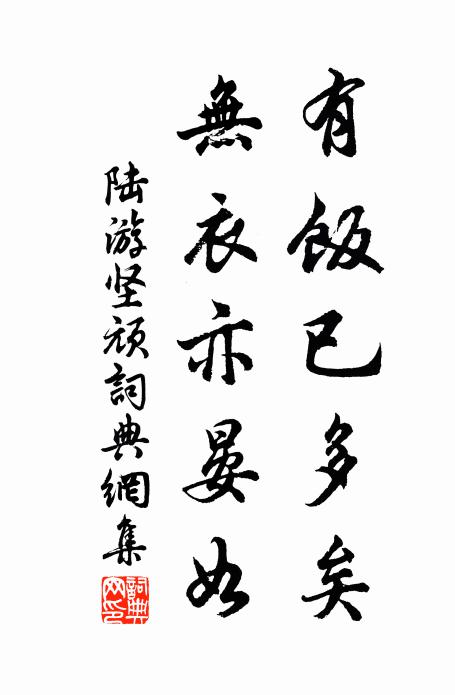 有飯已多矣
無衣亦晏如
陆游坚顽詞典網集
詞典网印